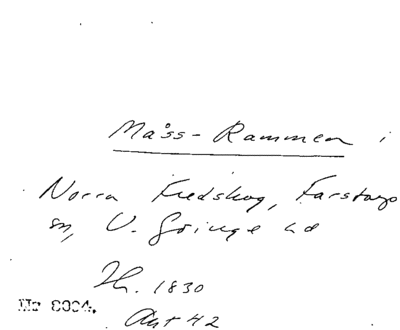 Måss-Rammen i
Norra Fredskog, Farstorp
sn, V. Göinge hd
Th. 1830
Ast 42